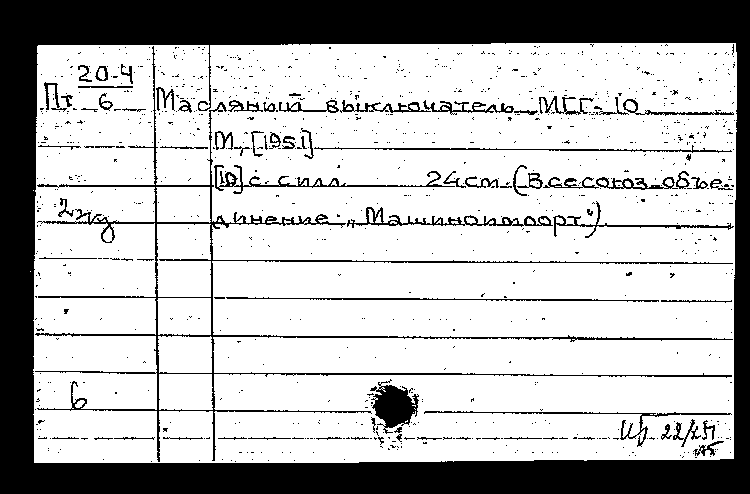 Пт 20-4
6
Масляный выключатель МГГ-10.
М, [1951]
[10] с. с илл. 24 см. (Всесоюз. объе-
2 экз
динение: „Машиноимпорт")
6
22/